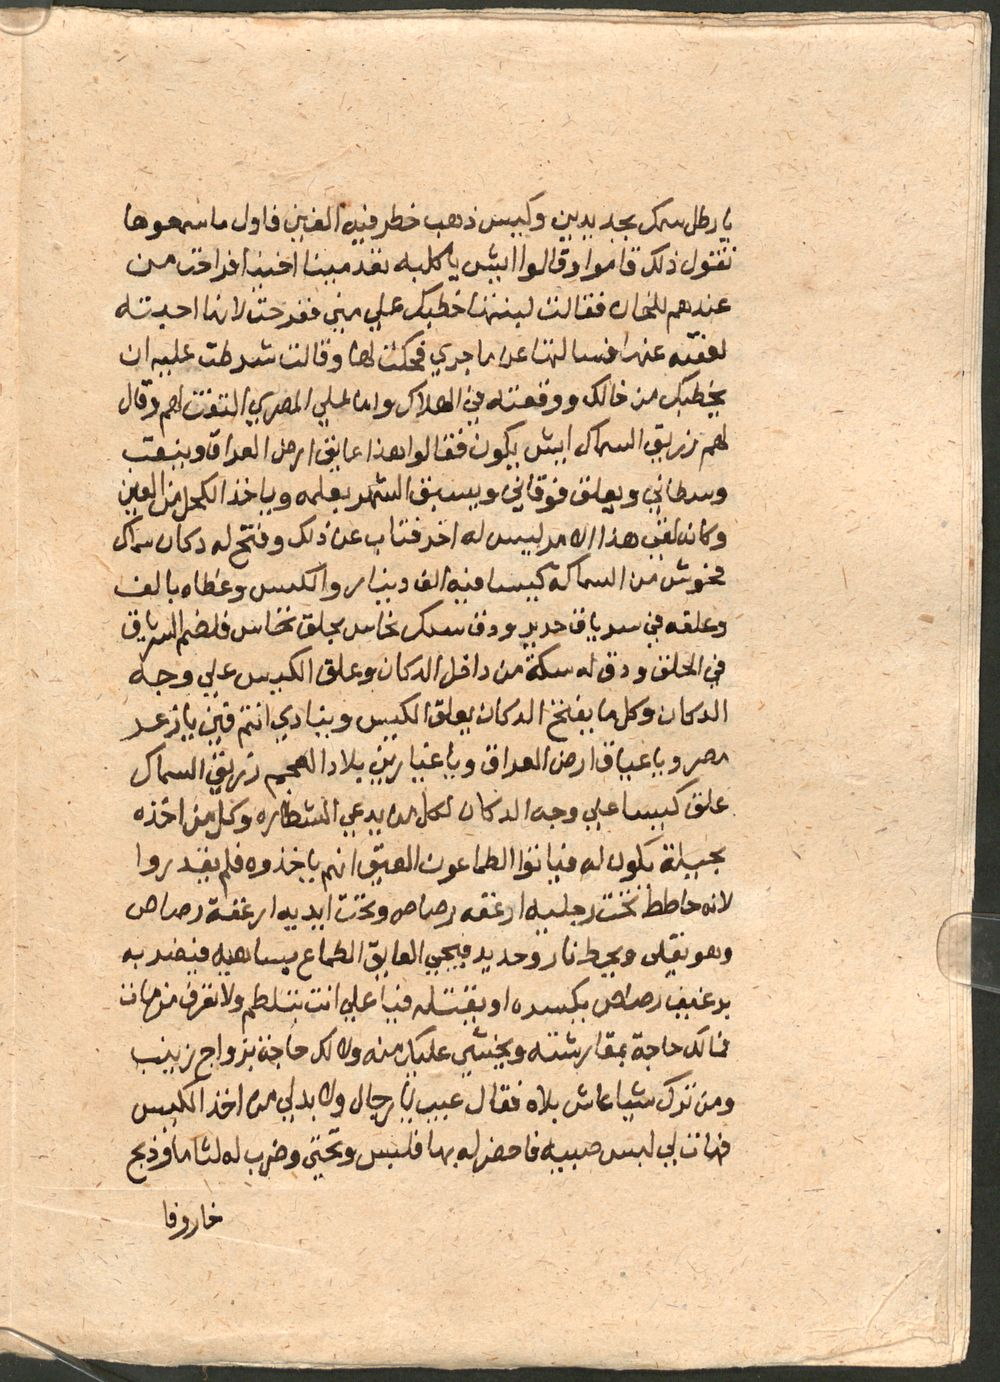 يا رطل سمك بجديدين وكييس ذهب خطر فيه الفين فاول ما سمعوها
تقول ذلك قاموا وقالوا ايش يا كلبه بعد مبينا اخينا فراحت من
عندهم للخان فقالت لبنتها خطبك علي مني ففرحت لانها احبته
لعفته عنها فسالتها عن ما جري فحكت لها وقالت شرطت عليه ان
يخطبك من خالك ووقعته في الهلاك واما علي المصري التفت لهم وقال
لهم زريق السماك ايش يكون فقالوا هذا عايق ارض العراق وينقب
وسطاني ويعلق فوقاني ويسبق الشهر بعلمه وياخذ الكحل من العين
وكان لفي هذا الامر ليس له اخر فتاب عن ذلك وفتح له دكان سماك
فحوش من السماكة كيسا فيه الف دينار والكيس وغطاه بالف
وعلقه في سرياق حرير ودق سكك نحاس بحلق نحاس فلضم السرياق
في الحلق ودق له سكة من داخل الدكان وعلق الكييس علي وجه
الدكان وكل ما يفتح الدكان يعلق الكييس وينادي انتم فين يا زعر
مصر ويا عياق ارض العراق ويا عيارين بلاد العجم زريق السماك
علق كيسا علي وجه الدكان لكل من يدعي الشطاره وكل من اخذه
بحيلة يكون له فياتوا الطماعون العيق انهم ياخذوه فلم يقدروا
لانه حاطط تحت رجليه ارغفه رصاص وتحت ايديه ارغفة رصاص
وهو يقلي ويحط نار وحديد فيجي العايق الطماع يساهيه فيضربه
برغيف رصاص يكسره او يقتله فيا علي انت بتلطم ولا تعرف من مات
فما لك حاجة بمقارشته ويخشي عليك منه ولا لك حاجة بزواج زينب
ومن ترك شيا عاش بلاه فقال عيب يا رجال ولا بد لي من اخذ الكيس
فهات لي لبس صبيه فاحضر له بها فلبس وتحني وضرب له لثاما وذبح
خاروفا